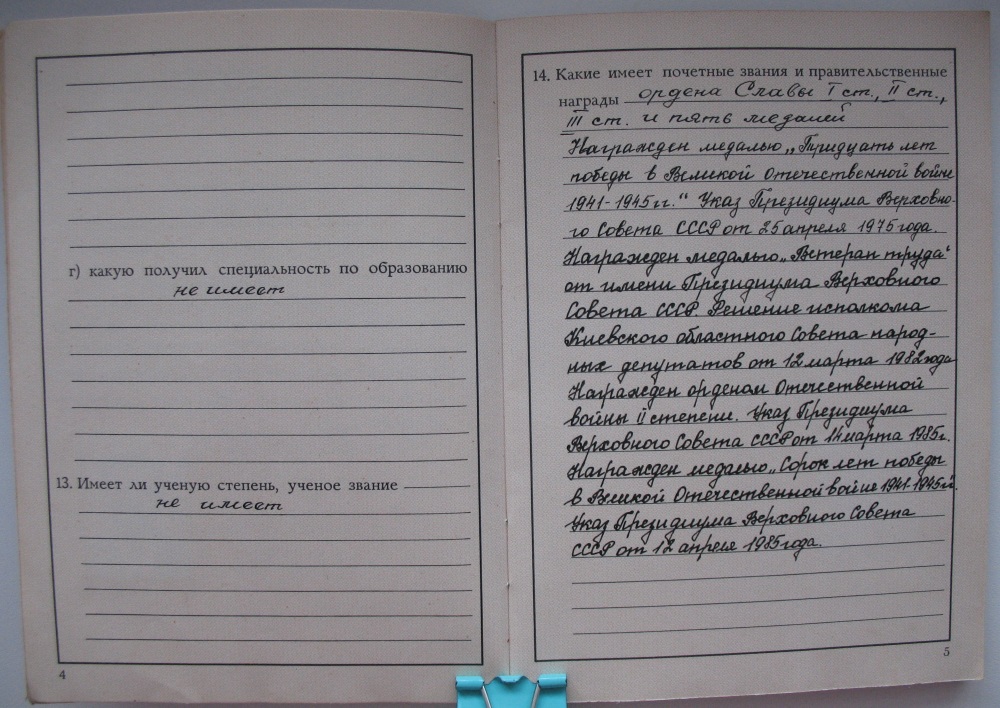 г) какую получил специальность по образованию
не имеет
13. Имеет ли ученую степень, ученое звание
не имеет
4
14. Какие имеет почетные звания и правительственные
награды ордена Славы I ст., II ст.,
III ст. и пять медалей
Награжден медалью „Тридцать лет
победы в Великой Отечественной войне
1941-1945 г.г.“ Указ Президиума Верховно-
го Совета СССР от 25 апреля 1975 года.
Награжден медалью „Ветеран труда“
от имени Президиума Верховного
Совета СССР. Решение исполкома
Киевского областного Совета народ-
ных депутатов от 12 марта 1982 года
Награжден орденом Отечественной
войны II степени. Указ Президиума
Верховного Совета СССР от 14 марта 1985 г.
Награжден медалью „Сорок лет победы
в Великой Отечественной войне 1941-1945 г.г.
Указ Президиума Верховного Совета
СССР от 12 апреля 1985 года.
5